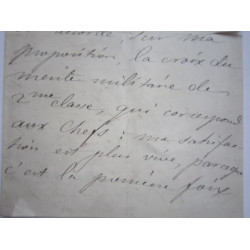 accordé sur ma
proposition, la croix du
mérite militaire de
2me classe, qui correspond
aux Chefs : ma satisfac-
tion est plus vive, parceque
c'est la première fois